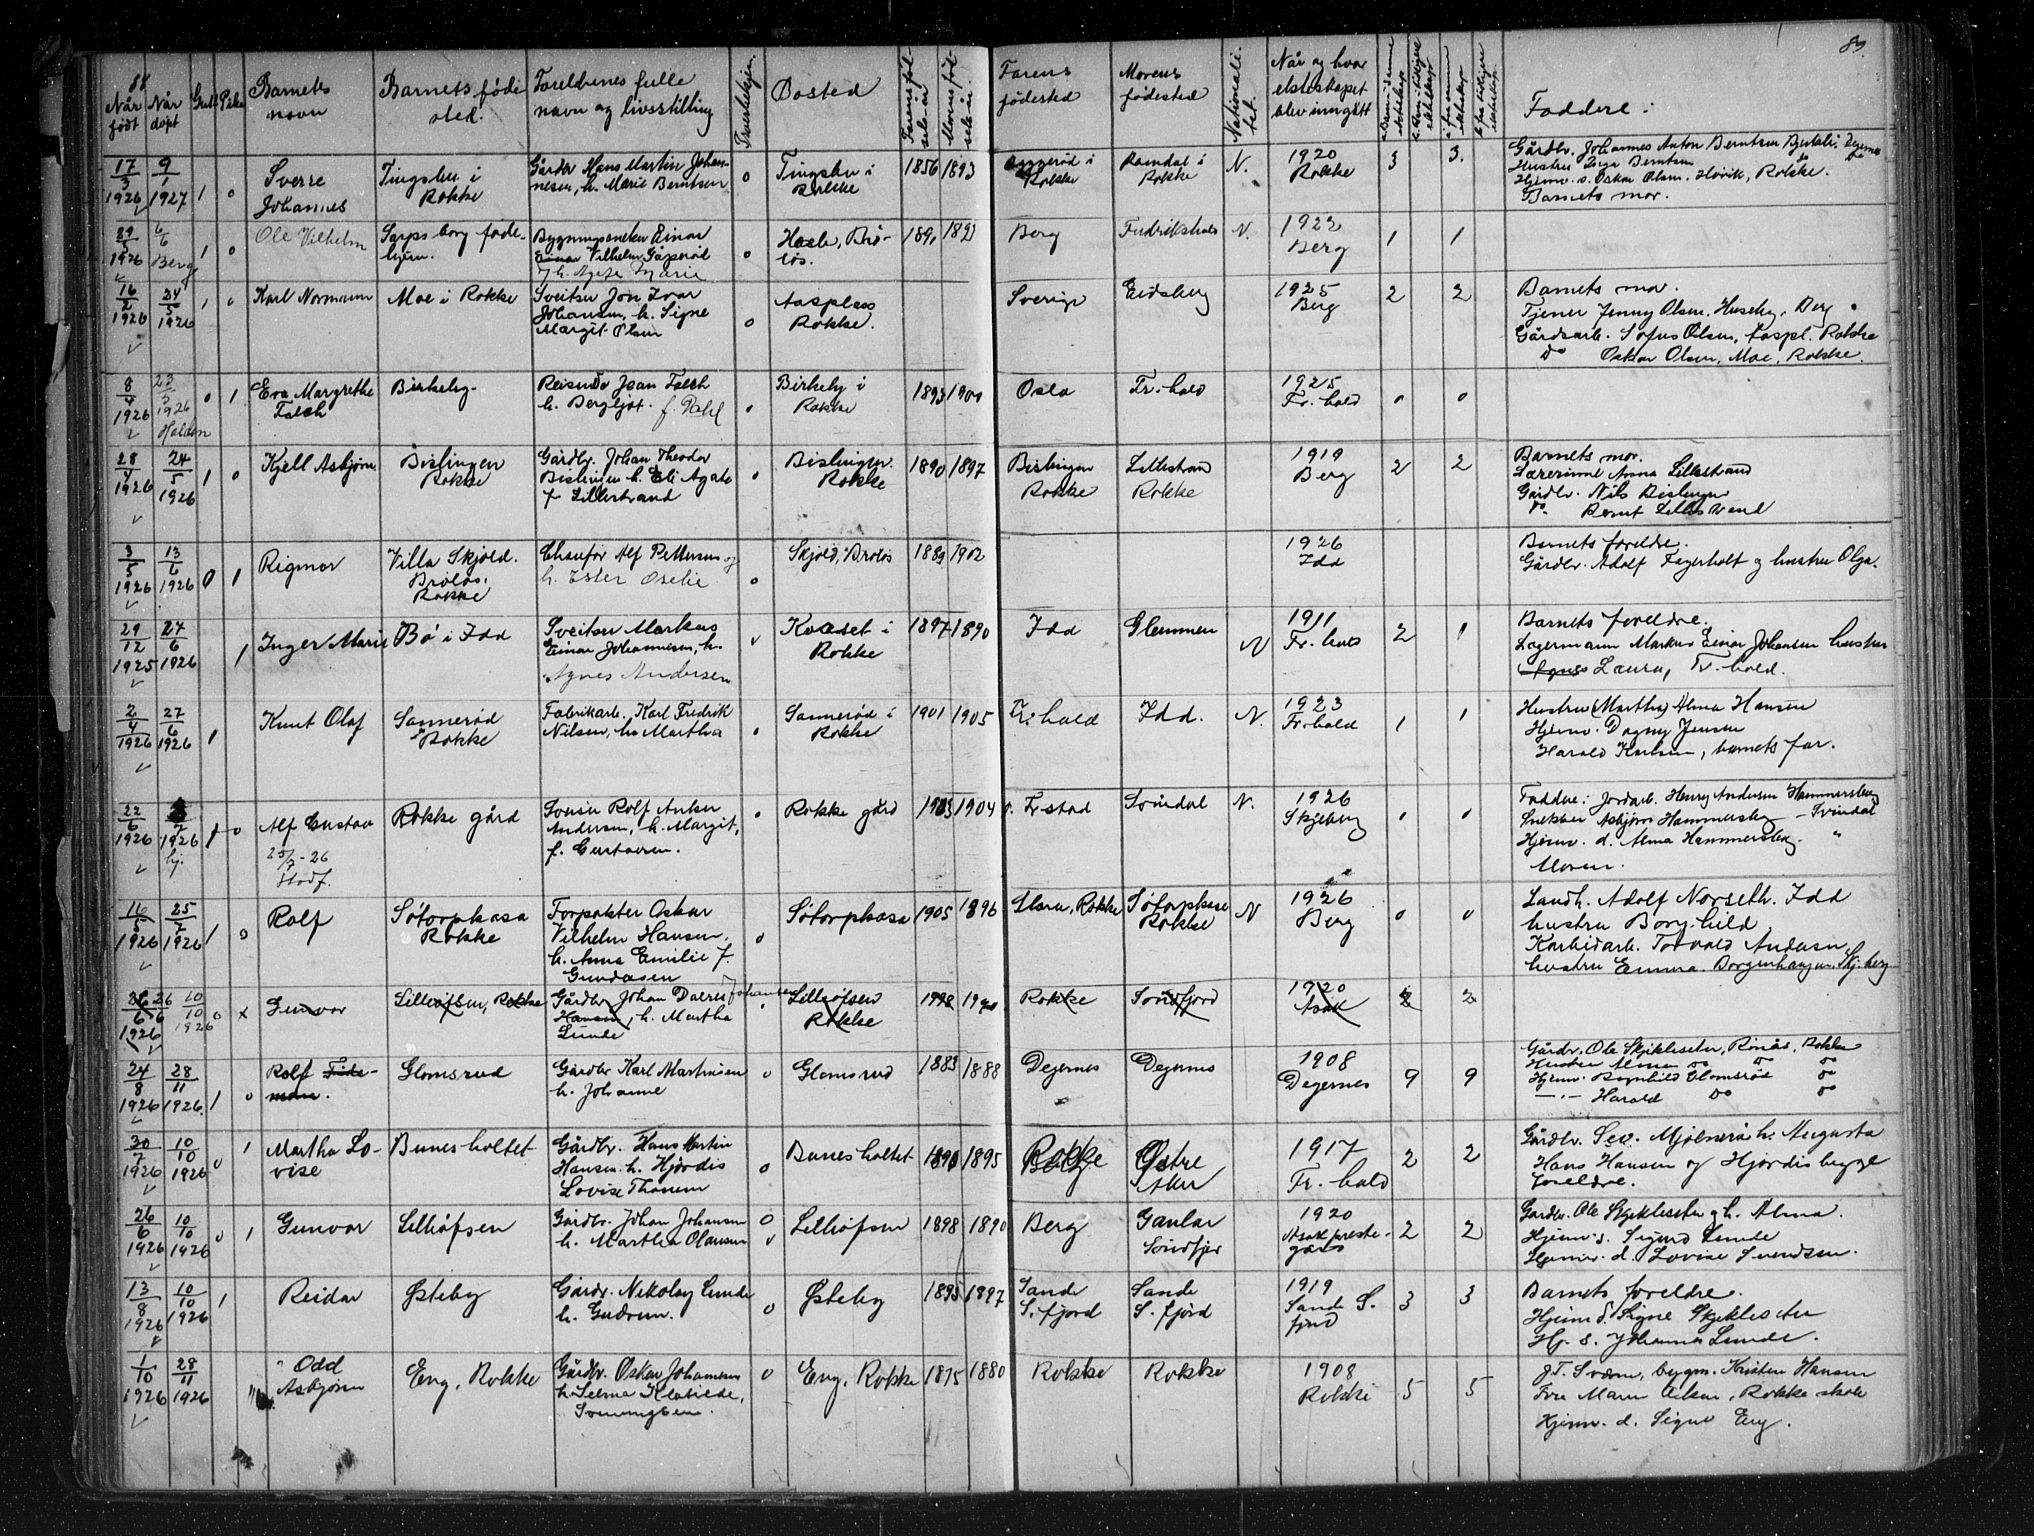 88
89
Når født
Når døpt
Gutt
Pike
Barnets navn
Barnets fødested.
Foreldrenes fulle navn og livsstilling
Bosted
Farens fødested
Morens fødested
Nationalitet.
Når og hvor ekteskapet blev inngått
Faddere:
17/3 1926 9/1 1927 1 0 Sverre Johannes
Tingslien i Rokke
Gårdbr Hans Martin Johannesen, h. Marie Berntsen
0 Tingslien i Rokke 1856 1893
Rokke
Ramdal i Rokke
N. 1920 Rokke 3 3.
Gårdbr. Johannes Anton Berntsen
Hustru Berntsen
Hjemv. s. Oskar Olsen. Høvik, Rokke.
Barnets mor.
29/5 1926 6/6 Berg 1 0 Ole Vilhelm
Sarpsborg fødehjem.
Einar Vilhelm
h. Agnes Marie
0 Berg N. 1923 Berg 1 1
16/2 1926 24/5 1926 1 0 Karl Normann
Moe i Rokke
Sveitser Jon Ivar Johansen, h. Signe Margit Olsen
0 Aasplass Rokke.
Sverige Eidsberg 1925 Berg 2 2
Barnets mor.
Tjener Jenny Olsen, Huseby, Berg
Gårdsarb. Sofus Olsen, Aaspl. Rokke
Do Oskar Olsen, Moe, Rokke.
8/4 1926 23/5 1926 Halden 0 1 Eva Margrethe Falch
Birkeby
Reisende Jean Falch h. Bergljot. f. Dahl
0 Birkeby i Rokke 1893 1900
Oslo Fr.hald 1925 Fr. hald 0 0
28/4 1926 24/5 1926 1 0 Kjell Asbjørn
Bislingen Rokke
Gårdbr. Johan Theodor Bislingen h. Eli Agate f Lillestrand
0 Bislingen Rokke 1890 1897
Bislingen Rokke
Lillestrand Rokke
1919 Berg 2 2
Barnets mor.
Lærerinne Anna Lillestrand
Gårdbr. Nils Bislingen
Do. Bernt Lillestrand
3/5 1926 13/6 1926 0 1 Rigmor
Villa Skjold. Brolos. Rokke
Chaufør Alf Pettersen og h. Ester Oselie
0 Skjold, Broløs 1889 1902
1926 Idd
Barnets foreldre.
Gårdbr. Adolf Fagerholt og hustru Olga.
29/12 1925 24/6 1926 1 Inger Marie
Bø i Idd
Sveitser Markus Einar Johannesen, h. Agnes Andersen
Rokke 1897 1890
Idd Glemmen N 1911 Fr.hald 2 1
Barnets foreldre.
Lagermann Markus Einar Johansen hustru
Agnes Laura, Fr. hald.
2/4 1926 27/6 1926 1 Knut Olaf
Sannerød Rokke
Fabrikarb. Karl Fredrik Nilsen, h. Martha
Sannerød i Rokke 1901 1905
Fr.hald Idd. N. 1923 Fr.hald 1 1
Hustru (Martha) Alma Hansen
Hjemv. Dagny Jensen
Harald Karlsen, barnets far.
22/6 1926 7 1926 hj. 1 0 Alf Gustav
25/7-26 Stadf.
Rokke gård
Rolf Anker Andersen, h. Margit, f. Gustavsen.
Rokke gård 1903 1904
Fr.stad N. 1926 Skjeberg 0 0
Faddere: Jordarb. Henry Andersen Hammersberg
Snekker Asbjørn Hammersberg
Hjemv. d. Alma Hammersberg
Moren.
16/5 1926 25/7 1926 1 0 Rolf
Søtorphasa Rokke
Forpakter Oskar Vilhelm Hansen, h. Anna Emilie f. Gundersen
0 Søtorphasa 1905 1896
Rokke
Søtorphasa Rokke
N 1926 Berg 0 0
Landh. Adolf Norseth. Idd
hustru Borghild,
Karbidarb. Torvald Andersen,
hustru Emma. Borgenhaugen, Skj.berg
26/6 1926 10/10 1926 0 x Gunvor
Lilleøfsen, Rokke
Gårdbr. Johan Johansen Hansen, h. Martha Lunde
Lilleøfsen Rokke
Rokke Søndfjord 1920 Asak 2 2
24/8 1926 28/11 1926 1 0 Rolf
Glomsrud
Gårdbr Karl Martinsen h. Johanne
0 Glomsrud 1883 1888
Degernes Degernes 1908 Degernes 9 9
Gårdbr. Ole Skjeklesæter, Rønås, Rokke
Hustru Alma Do Do
Hjemv. Ragnhild Glomsrød Do
Harald Do Do
30/7 1926 10/10 1926 0 1 Martha Lovise
Bunesholtet
Gårdbr. Hans Martin Hansen h. Hjørdis Lovise Thonem
0 Bunesholtet 1895
Rokke
Østre Aker
1917 Fr. hald 2 2
Gårdbr. Sev. h. Augusta
Hans Hansen og Hjørdis begge
foreldre.
26/6 1926 10/10 1926 0 1 Gunvor
Lilleøfsen
Gårdbr. Johan Johansen h. Martha Olausen
0 Lilleøfsen 1898 1890
Berg
Gaular Søndfjor
1920 Asak prestegård 2 2
Gårdbr. Ole Skjeklesæter g h. Alma.
Hjemv. s. Sigurd Lunde
Hjemv. d. Lovise Svendsen.
13/8 1926 10/10 1926 1 Reidar
Østeby
Gårdbr. Nikolay Lunde h. Gudrun.
0 Østeby 1895 1897
Sande S. fjord
Sande S. fjord
1919 Sande S. fjord 3 3
Barnets foreldre.
Hjemv. d. Signe Skjeklesæter
Hj. d. Johanna Lunde.
1/10 1926 28/11 1926 Odd Asbjørn
Eng, Rokke
Gårdbr. Oskar Johannesen h. Selma Klotilde,
0 Eng, Rokke 1875 1880
Rokke Rokke 1908 Rokke 5 5
byggm. Kristen Hansen
Rokke skole
Hjemv. d. Signe Eng.